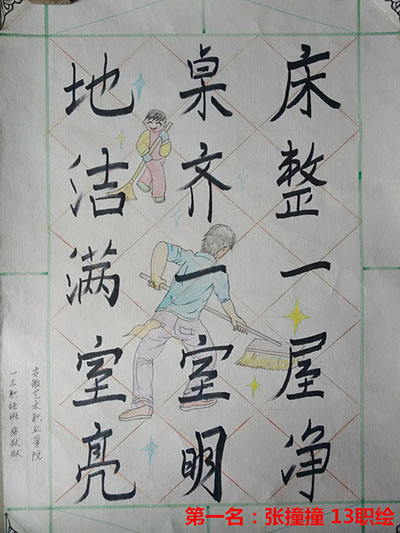 床整一屋净
桌齐一室明
地洁满室亮
安徽艺术职业学院
一三职绘班
第一名：张撞撞 13职绘